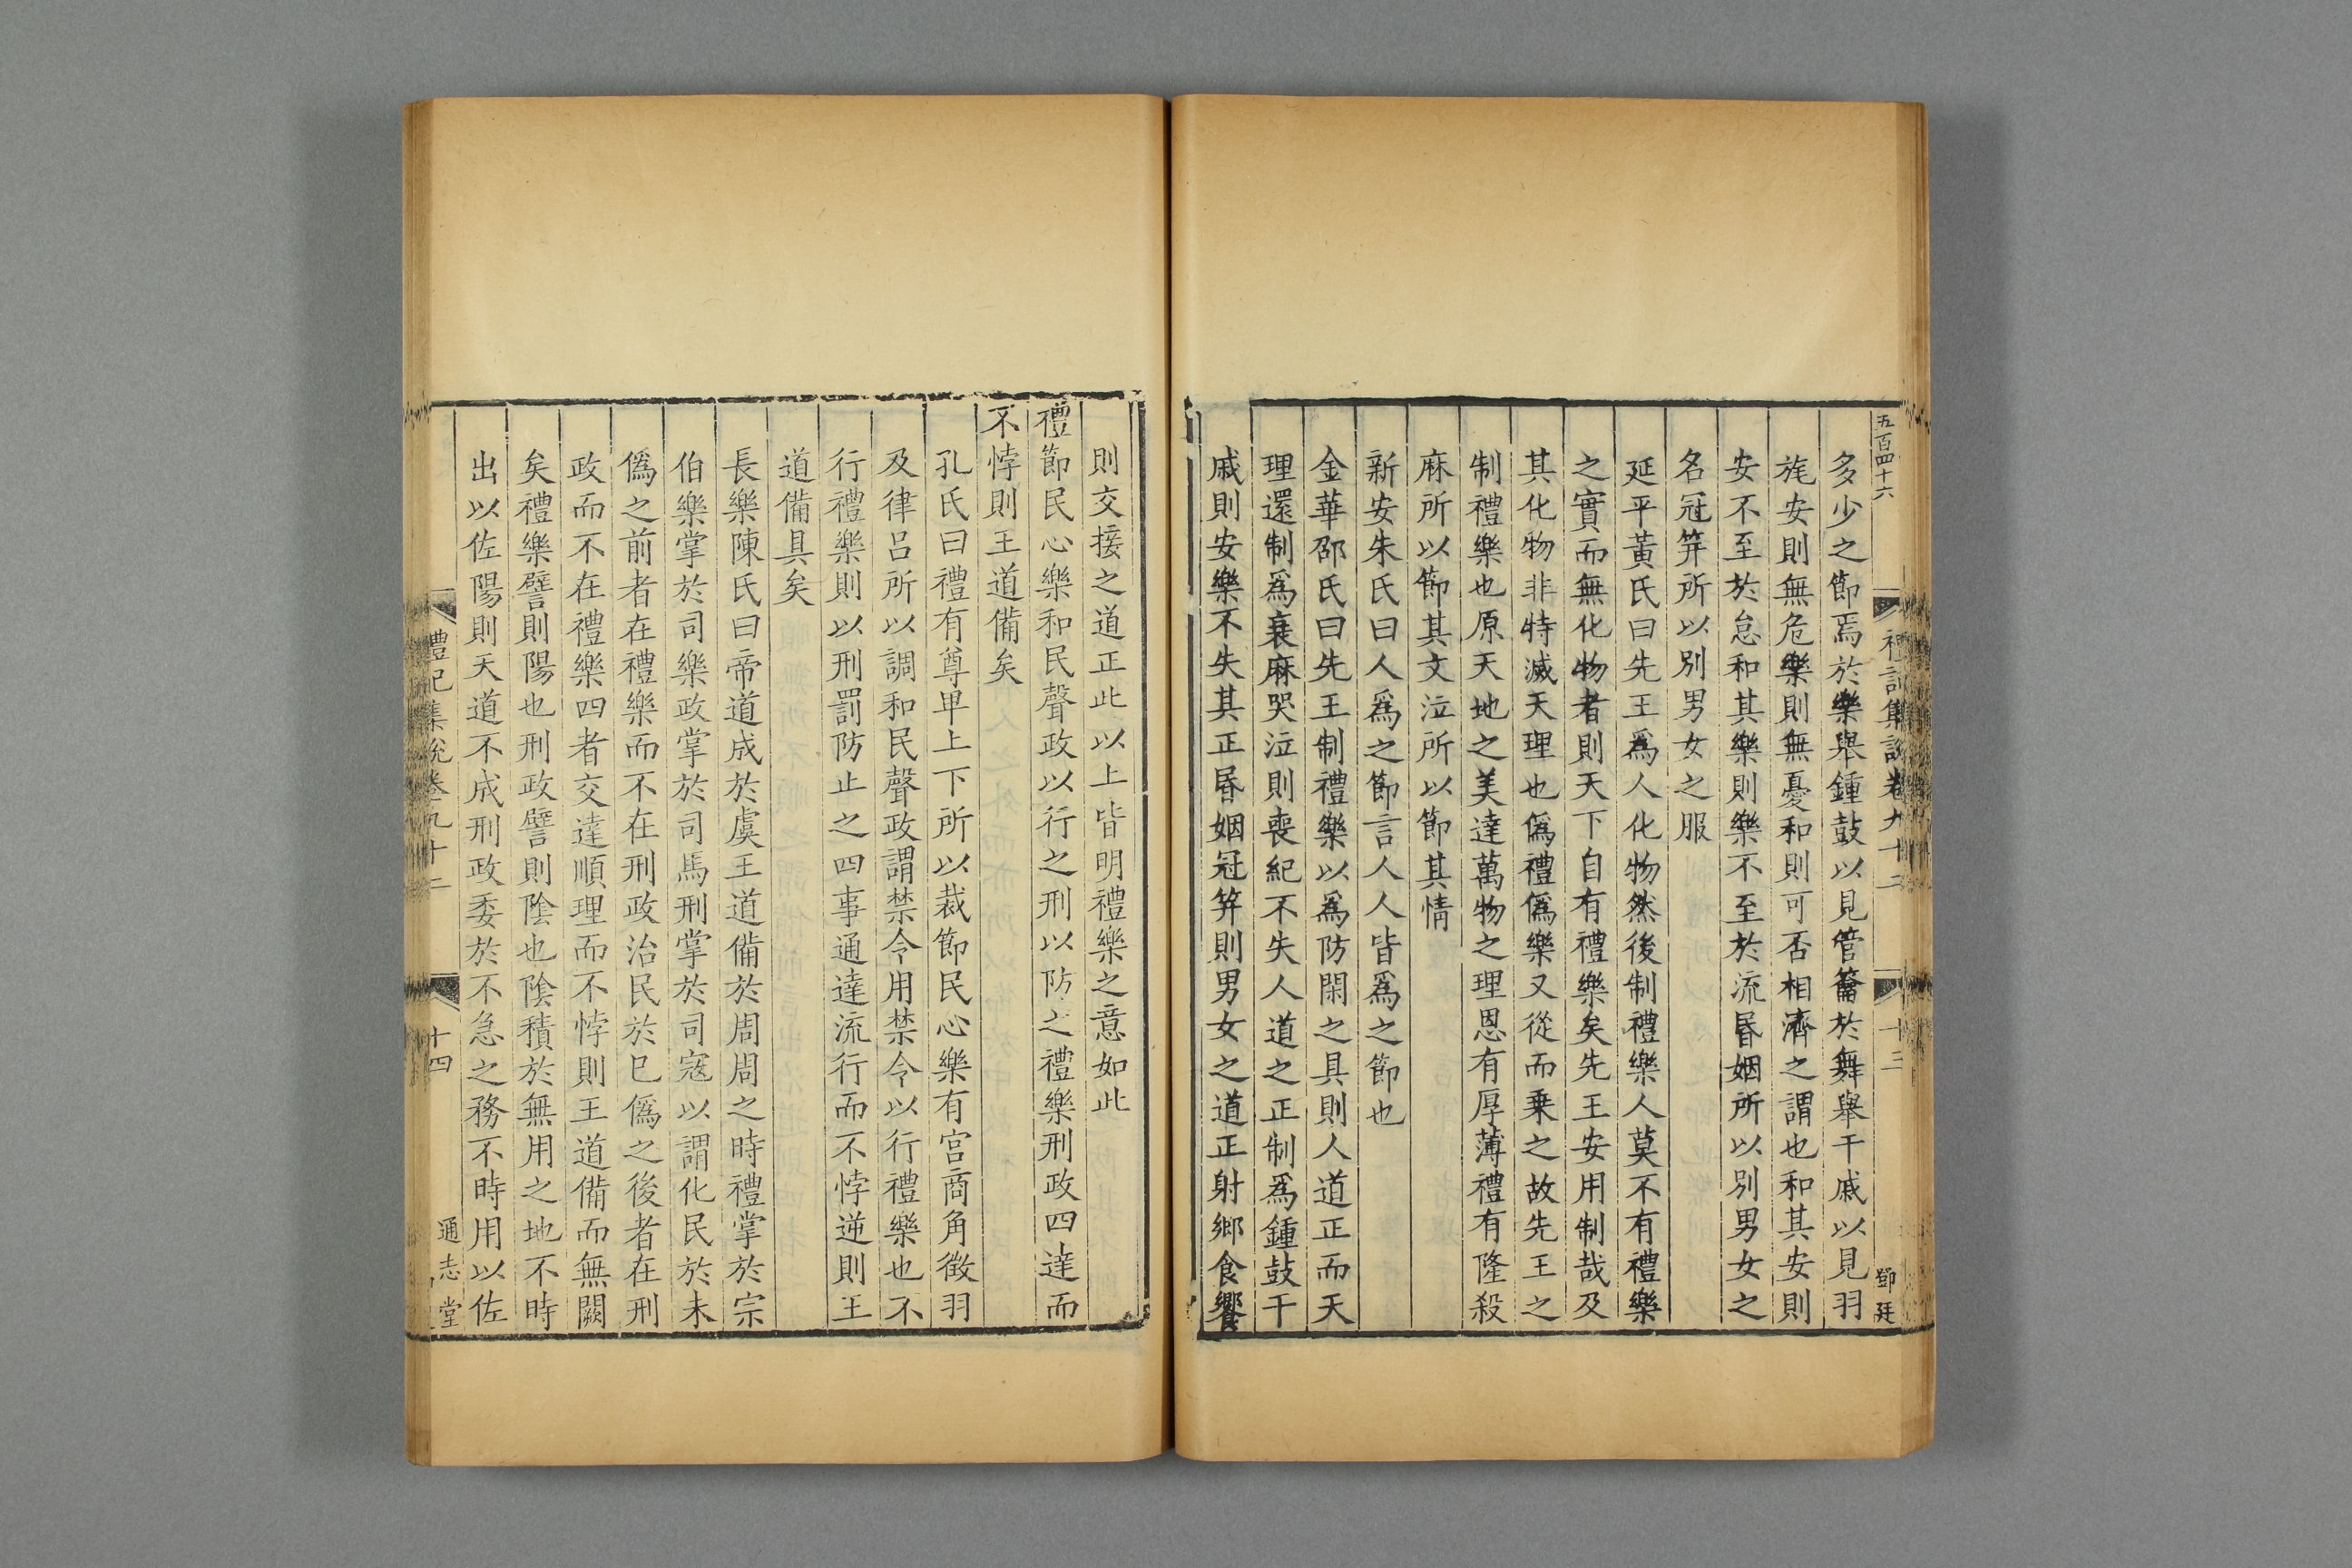 五百四十六
禮記集說卷九十二
十三
鄧廷
多少之節焉於樂舉鍾鼓以見管籥於舞舉干戚以見羽
旄安則無危樂則無憂和則可否相濟之謂也和其安則
安不至於怠和其樂則樂不至於流昬姻所以別男女之
名冠笄所以別男女之服
延平黃氏曰先王爲人化物然後制禮樂人莫不有禮樂
之實而無化物者則天下自有禮樂矣先王安用制哉及
其化物非特滅天理也僞禮僞樂又從而乗之故先王之
制禮樂也原天地之美達萬物之理恩有厚薄禮有隆殺
麻所以節其文泣所以節其情
新安朱氏曰人爲之節言人人皆爲之節也
金華邵氏曰先王制禮樂以爲防閑之具則人道正而天
理還制爲衰麻哭泣則喪紀不失人道之正制爲鍾鼓干
戚則安樂不失其正昬姻冠笄則男女之道正射鄉食饗
則交接之道正此以上皆明禮樂之意如此
禮節民心樂和民聲政以行之刑以防之禮樂刑政四達而
不悖則王道備矣
孔氏曰禮有尊卑上下所以裁節民心樂有宫商角徵羽
及律呂所以調和民聲政謂禁令用禁令以行禮樂也不
行禮樂則以刑罰防止之四事通達流行而不悖逆則王
道備具矣
長樂陳氏曰帝道成於虞王道備於周周之時禮掌於宗
伯樂掌於司樂政掌於司馬刑掌於司寇以謂化民於未
僞之前者在禮樂而不在刑政治民於巳僞之後者在刑
政而不在禮樂四者交達順理而不悖則王道備而無闕
矣禮樂譬則陽也刑政譬則陰也陰積於無用之地不時
出以佐陽則天道不成刑政委於不急之務不時用以佐
禮記集說卷九十二
十四
通志堂